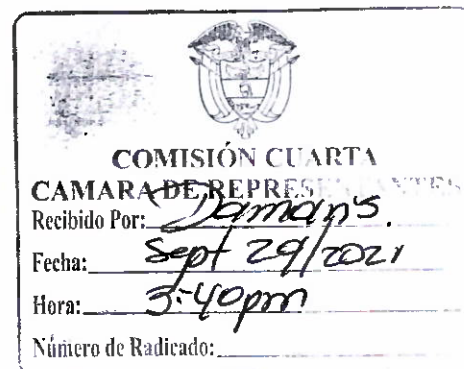 COMISIÓN CUARTA
CAMARA DE REPRESENTANTES
Recibido Por: Damaris.
Fecha: Sept 29/2021
Hora: 3:40pm
Número de Radicado: